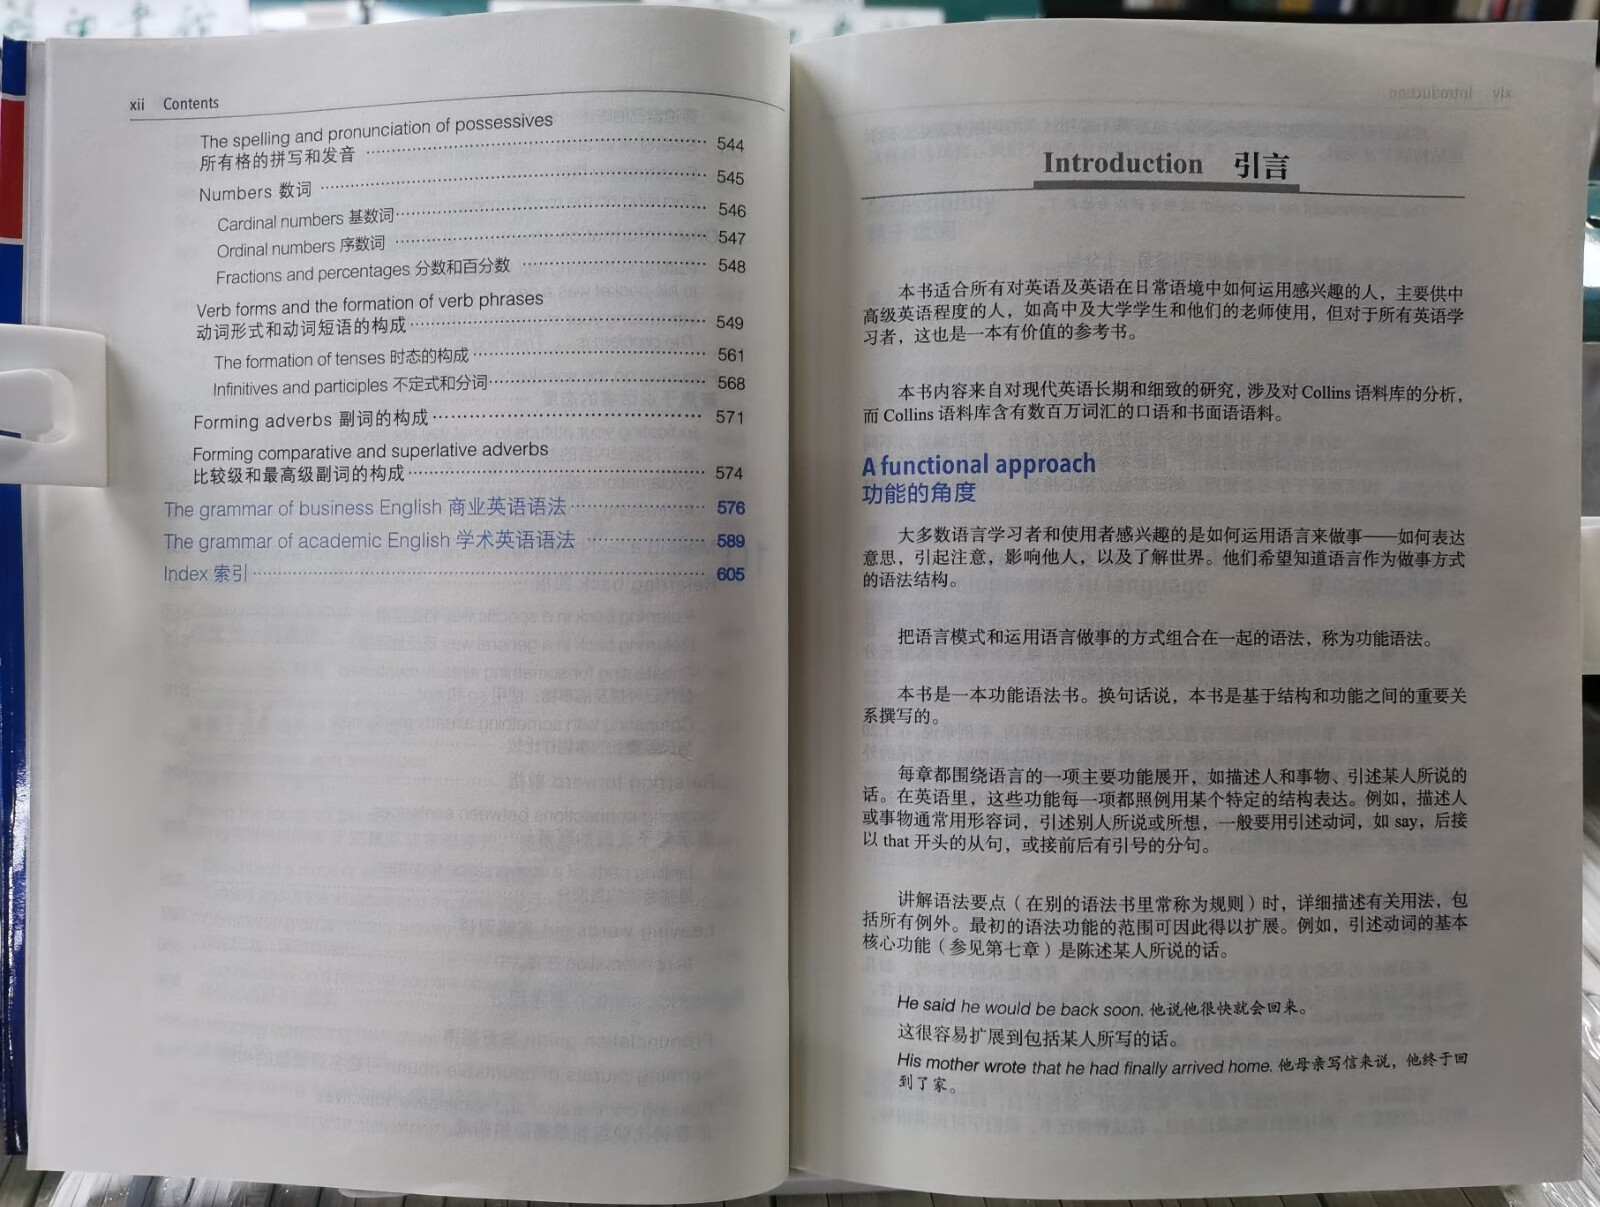 xii Contents
The spelling and pronunciation of possessives
所有格的拼写和发音 544
Numbers 数词 545
Cardinal numbers 基数词 546
Ordinal numbers 序数词 547
Fractions and percentages 分数和百分数 548
Verb forms and the formation of verb phrases
动词形式和动词短语的构成 549
The formation of tenses 时态的构成 561
Infinitives and participles 不定式和分词 568
Forming adverbs 副词的构成 571
Forming comparative and superlative adverbs
比较级和最高级副词的构成 574
The grammar of business English 商业英语语法 576
The grammar of academic English 学术英语语法 589
Index 索引 605
Introduction 引言
本书适合所有对英语及英语在日常语境中如何运用感兴趣的人，主要供中
高级英语程度的人，如高中及大学学生和他们的老师使用，但对于所有英语学
习者，这也是一本有价值的参考书。
本书内容来自对现代英语长期和细致的研究，涉及对 Collins 语料库的分析，
而 Collins 语料库含有数百万词汇的口语和书面语语料。
A functional approach
功能的角度
大多数语言学习者和使用者感兴趣的是如何运用语言来做事——如何表达
意思，引起注意，影响他人，以及了解世界。他们希望知道语言作为做事方式
的语法结构。
把语言模式和运用语言做事的方式组合在一起的语法，称为功能语法。
本书是一本功能语法书。换句话说，本书是基于结构和功能之间的重要关
系撰写的。
每章都围绕语言的一项主要功能展开，如描述人和事物、引述某人所说的
话。在英语里，这些功能每一项都照例用某个特定的结构表达。例如，描述人
或事物通常用形容词，引述别人所说或所想，一般要用引述动词，如 say，后接
以 that 开头的从句，或接前后有引号的分句。
讲解语法要点（在别的语法书里常称为规则）时，详细描述有关用法，包
括所有例外。最初的语法功能的范围可因此得以扩展。例如，引述动词的基本
核心功能（参见第七章）是陈述某人所说的话。
He said he would be back soon. 他说他很快就会回来。
这很容易扩展到包括某人所写的话。
His mother wrote that he had finally arrived home. 他母亲写信来说，他终于回
到了家。